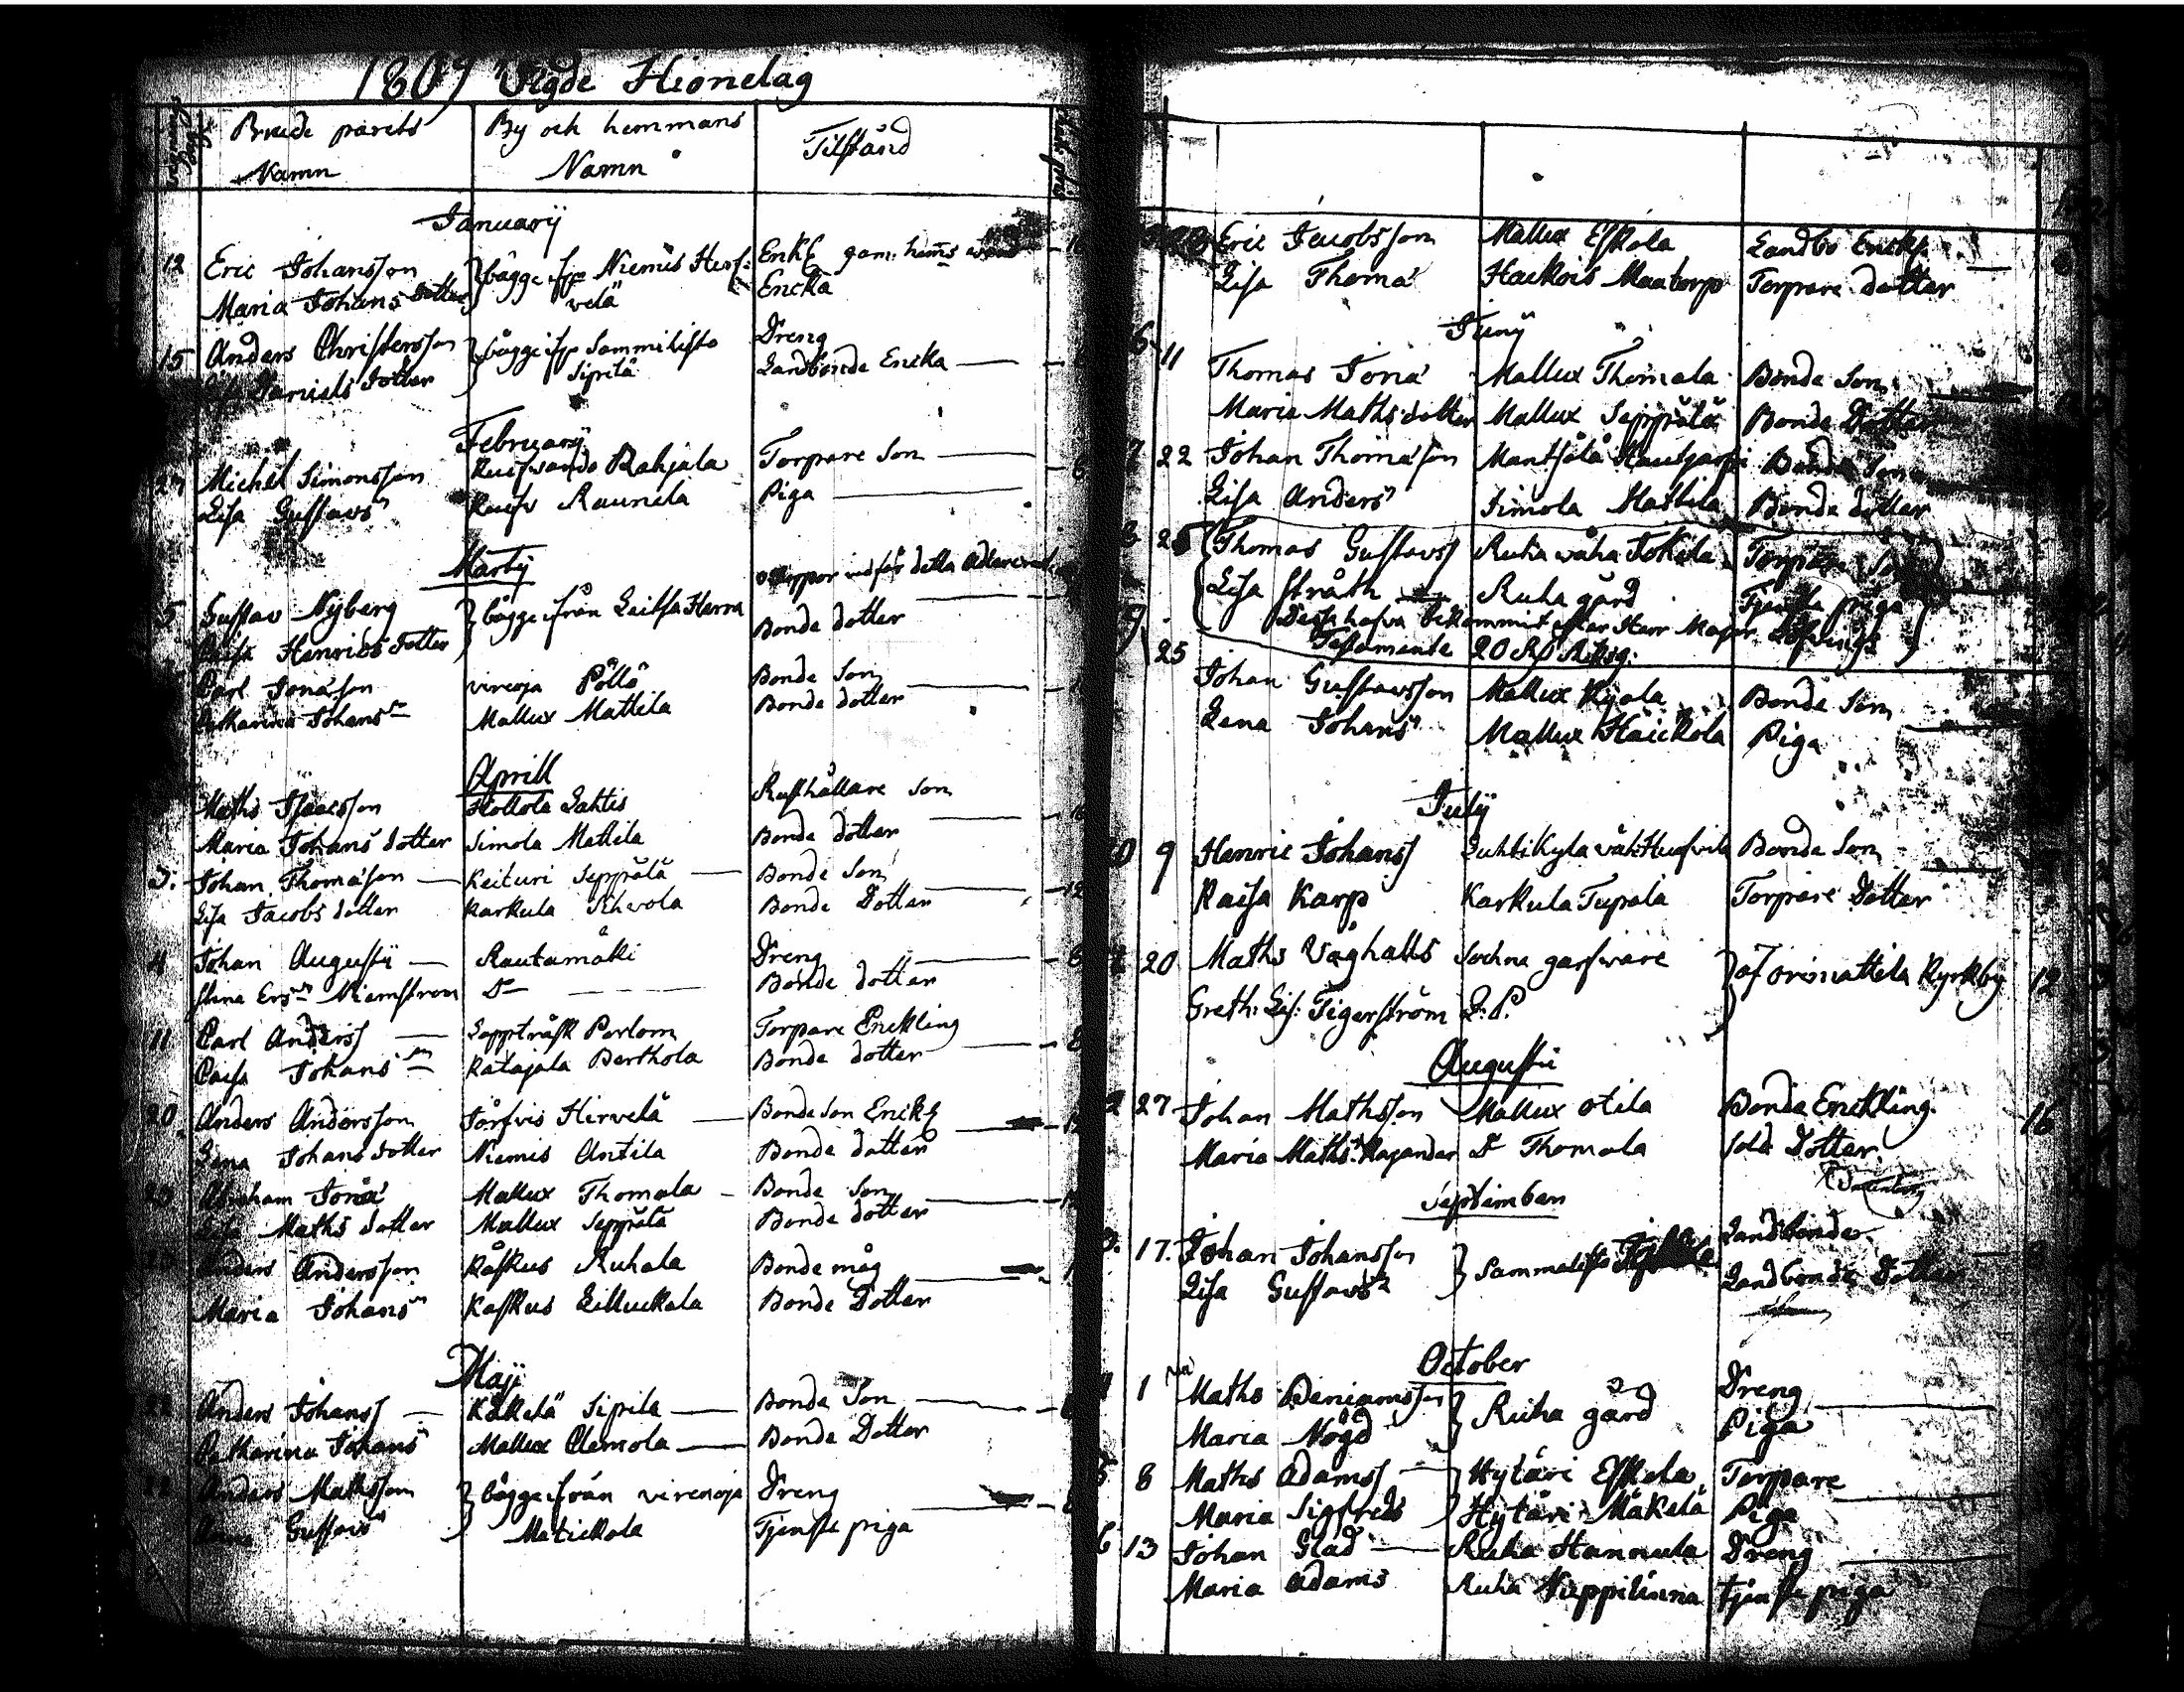 1809 Vigde Hionelag
Brude parets Namn By och hemmans Namn Tilstånd
January
12 Eric Johansson } bägge ifr Niemis Herf: Enkl gam: hems
Maria Johans dotter velä Encka
15 Anders Christersson } bägge ifr Sammilisto Dreng
Daniels dotter Sipilä Landbonde Encka
February
27 Michel Simonsson Rahjala Torpare Son 6
Lisa Gustavs Raunela Piga
Martij
5 Gustav Nyberg } bägge ifrån Laitsa Harra
Henrics dotter Bonde dotter
Carl Jonason virenoja Pöllö Bonde Son
Catharina Johans Mallux Mattila Bonde dotter
Aprill
Maths Isaacsson Hollola Lahtis Rusthållare Son
Maria Johans dotter Simola Mattila Bonde dotter
3. Johan Thomason Keituri Seppälä Bonde Son 12
Lisa Jacobs dotter Karkula Bonde Dotter
4 Johan Augusti Rautamäki Dreng 8
Stina Ers Niemstrom D Bonde dotter
11 Carl Anderss Lopptråsk Porlom Torpare Enckling 8
Caisa Johans Ratajala Berthola Bonde dotter
20. Anders Andersson Järfvis Hirvelä Bonde Son Enckl 12
Lena Johans dotter Niemis Antila Bonde dotter
Abraham Jona Mallux Thomala Bonde Son
Lisa Maths dotter Mallux Seppälä Bonde dotter
Anders Andersson Kåskus Ruhala Bonde måg
Maria Johans Kaskus Lilluckala Bonde Dotter
Maji
Anders Johanss Käkelä Sipila Bonde Son
Catharina Johans Mallux Clemola Bonde Dotter
Anders Mathsson } bägge ifrån virenoja Dreng
Gustavs Matickala Tjenste piga
Eric Jacobsson Mallux Eskola Landbo Enckl.
Lisa Thoma Haekois Maatorp Torpare dotter
Juny
6 11 Thomas Jona Mallux Thomala Bonde Son
Maria Maths dotter Mallux Seppälä Bonde Dotter
7 22 Johan Thomason Mantsälä Hautjarfvi Bonde Son
Lisa Anders Simola Mattila Bonde dotter
8 25 Thomas Gustavss Ruha wäha Jokila Torpare Son
Lisa Stråth Ruha gård Tjensta piga
Dessa hafva bekommit efter Herr Major
Testamente 20 Rd
9 25 Johan Gustavsson Mallux Kyola Bonde Son
Lena Johans Mallux Häickola Piga
July
10 9 Henric Johanss Luhtikylä Bonde Son
Kaisa Karp Karkula Tupala Torpare Dotter
20 Maths Våghals Sochne garfware } af Orimattila Kyrkby 12
Greth: Lis: Tigerström D.P.
Augusti
27 Johan Mathsson Mallux Otila Bonde Enckling. 16
Maria Maths. D Thomola Sold Dotter
September
17. Johan Johansson } Sammalisto Landbonde
Lisa Gustavs Landbonde Dotter
October
1 Maths Beniamsson } Ruha gård Dreng
Maria Nögd Piga
8 Maths Adamss } Hytäri Eskola Torpare
Maria Sigfreds Hytäri Mäkelä Piga
6 13 Johan Glad Ruha Hannula Dreng
Maria Adams Ruha Nappilinna tjenste piga